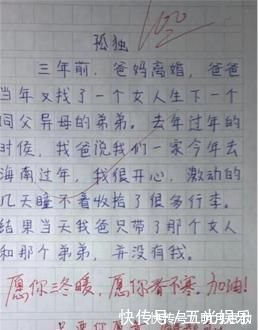 100
孤独
三年前,爸妈离婚,爸爸
当年又找了一个女人生下一个
同父异母的弟弟。去年过年的
时候,我爸说我们一家今年去
海南过年,我很开心,激动的
几天睡不着收拾了很多行李。
结果当天我爸只带了那个女人
和那个弟弟,并没有我。
愿你三冬暖,愿你春不寒。加油!
快传号